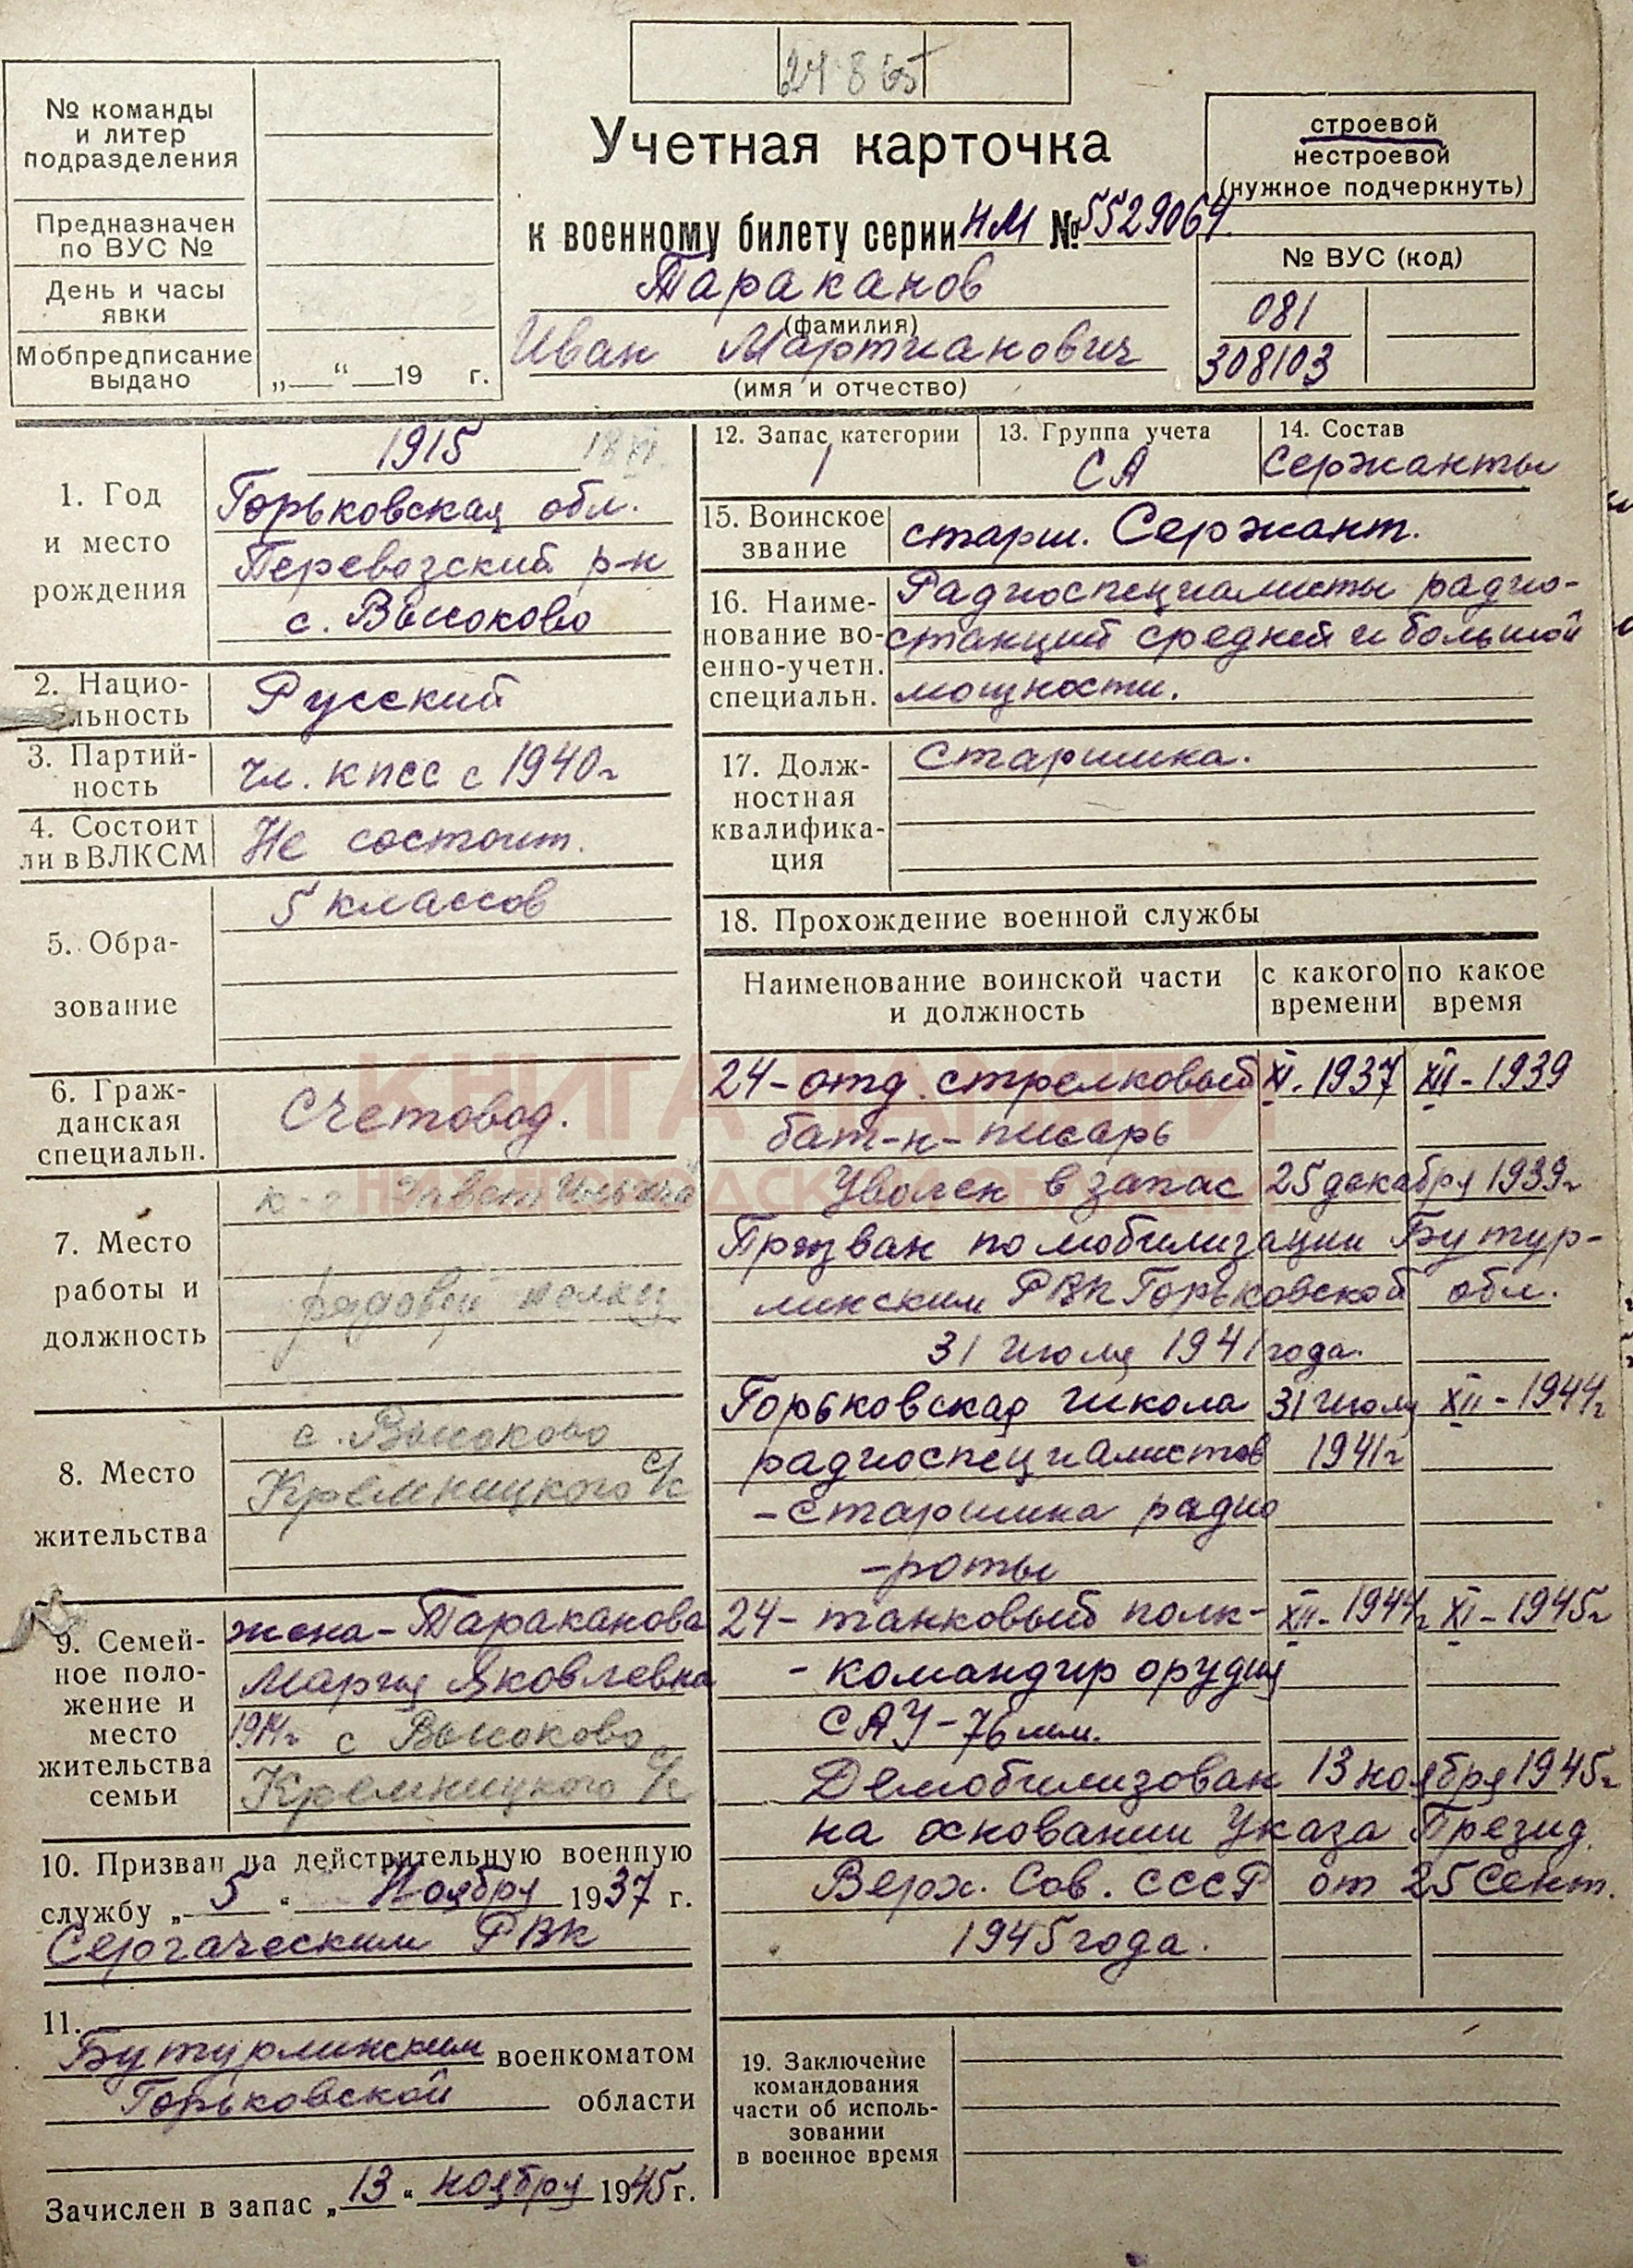 24 8 65
№ команды
и литер
подразделения
Предназначен
по ВУС №
День и часы
явки
Мобпредписание
выдано
„ “ 19 г.
Учетная карточка
к военному билету серии НМ № 5529064
Тараканов
(фамилия)
Иван Мартианович
(имя и отчество)
строевой
нестроевой
(нужное подчеркнуть)
№ ВУС (код)
081
308103
1. Год
и место
рождения
1915 18 VI.
Горьковская обл.
Перевозский р-н
с. Высоково
2. Нацио-
льность
Русский
3. Партий-
ность
чл. КПСС с 1940г
4. Состоит
ли в ВЛКСМ
Не состоит.
5. Обра-
зование
5 классов
6. Граж-
данская
специальн.
Счетовод.
7. Место
работы и
должность
к-з Завет Ильича
рядовой
8. Место
жительства
с. Высоково
Кремницкого с/с
9. Семей-
ное поло-
жение и
место
жительства
семьи
жена - Тараканова
Мария Яковлевна
1914г с Высоково
Кремницкого с/с
10. Призван на действительную военную
службу „ 5 “ Ноября 1937 г.
Сергачским РВК
11.
Бутурлинским военкоматом
Горьковской области
Зачислен в запас „ 13 “ ноября 1945 г.
12. Запас категории
1
13. Группа учета
СА
14. Состав
Сержанты
15. Воинское
звание
старш. Сержант.
16. Наиме-
нование во-
енно-учетн.
специальн.
Радиоспециалисты радио-
станций средней и большой
мощности.
17. Долж-
ностная
квалифика-
ция
Старшина.
18. Прохождение военной службы
Наименование воинской части
и должность
с какого
времени
по какое
время
24 - отд. стрелковый XI. 1937 XII - 1939
бат-н - писарь
Уволен в запас 25 декабря 1939г
Призван по мобилизации Бутур-
линским РВК Горьковской обл.
31 июля 1941 года.
Горьковская школа 31 июля XII - 1944г
радиоспециалистов 1941г
- старшина радио
- роты
24 - танковый полк - XII - 1944г XI - 1945г
- командир орудия
САУ - 76 мм.
Демобилизован 13 ноября 1945г
на основании Указа Презид.
Верх. Сов. СССР от 25 Сент.
1945 года.
19. Заключение
командования
части об исполь-
зовании
в военное время
КНИГА ПАМЯТИ
НИЖЕГОРОДСКОЙ ОБЛАСТИ